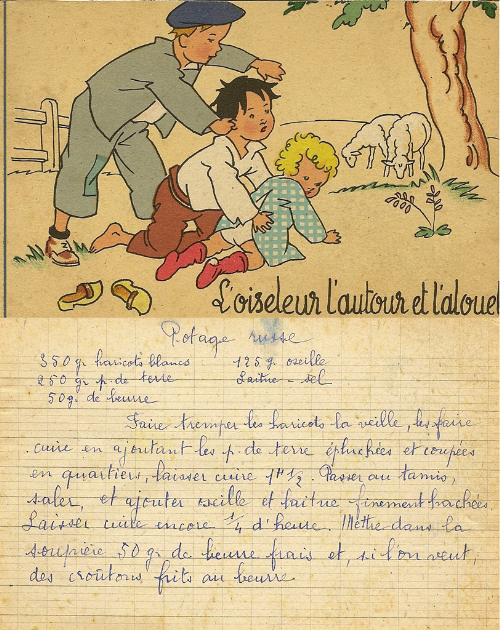 L'oiseleur l'autour et l'aloue
Potage russe
350 gr haricots blancs 125 g. oseille
250 gr p. de terre Laitue - sel
50 g. de beurre
Faire tremper les haricots la veille, les faire
cuire en ajoutant les p. de terre épluchées et coupées
en quartiers, laisser cuire 1H ½. Passer au tamis,
saler, et ajouter oseille et laitue finement hachées.
Laisser cuire encore ¼ d'heure. Mettre dans la
soupière 50 gr de beurre frais et, si l'on veut,
des croûtons frits au beurre